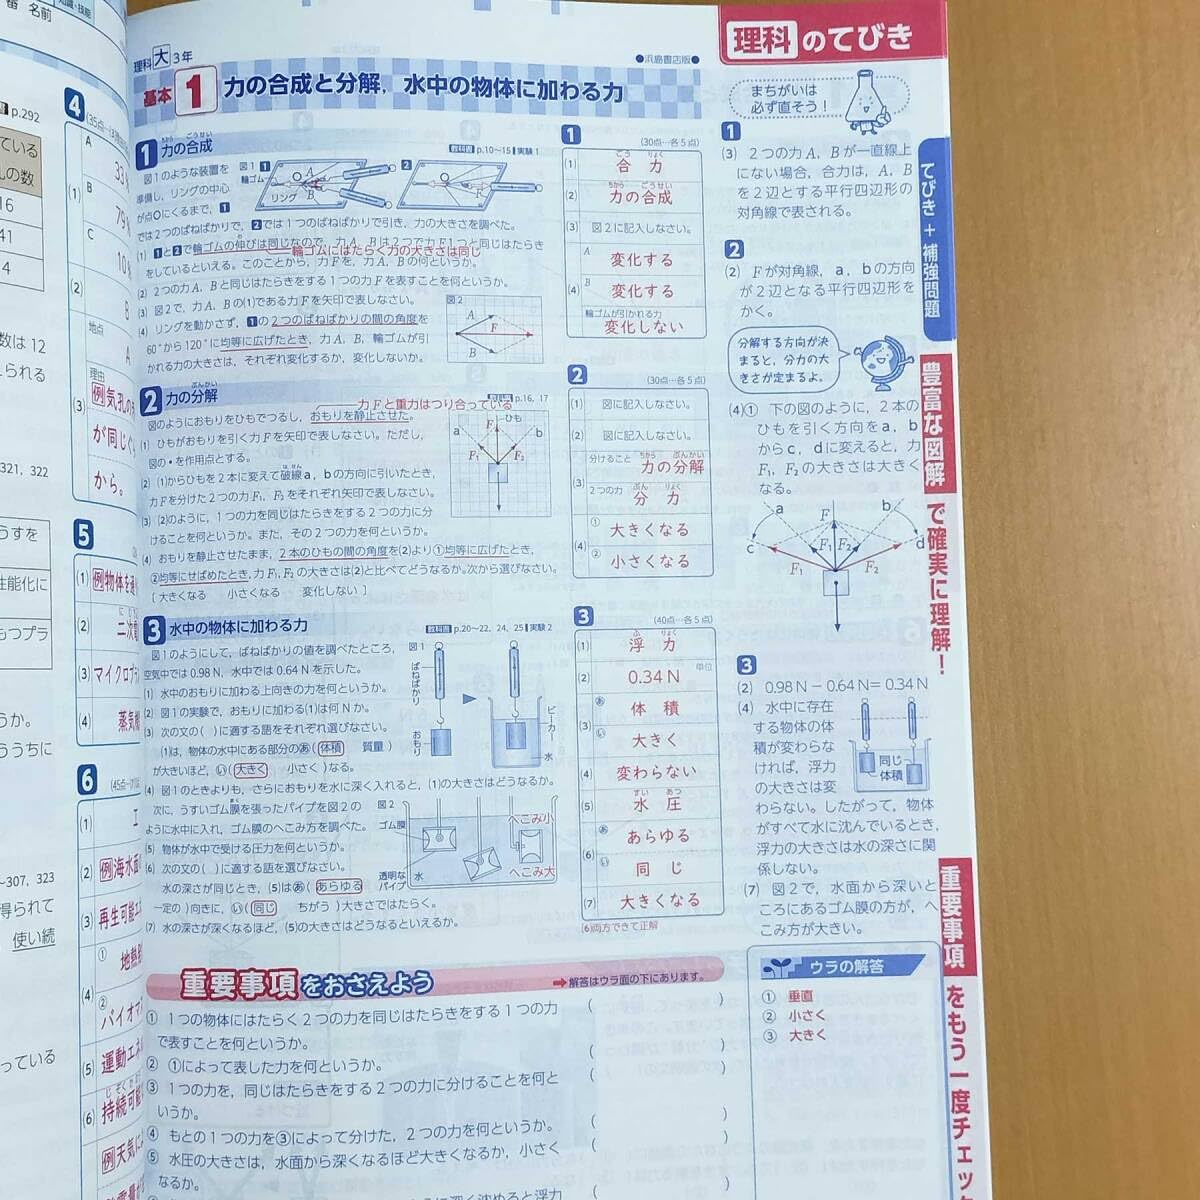 番 名前
知識・技能
p.292
ている
孔の数
16
41
4
数は12
えられる
321, 322
うすを
性能化に
もつプラ
うか。
ううちに
~307, 323
得られて
使い続
っている
4
(35点
A
33%
(1)
B
79%
C
10%
(2)
B
地点
A
理由
(3)
例 気孔の
が同じぐ
から。
5
(1) 例 物体を通
(2) 二次電
(3) マイクロプラ
(4) 蒸気機
6
(45点
(1) エ
(2) 例 海水面
(3) 再生可能エ
(4)
① 地熱
② バイオマ
(5) 運動エネ
(6) 持続可能
例 天気に
理科 大 3年
●浜島書店版●
基本 1 力の合成と分解,水中の物体に加わる力
1 力の合成
教科書 p.10~15 実験1
図1のような装置を
準備し,リングの中心
が点Oにくるまで, 1
では2つのばねばかりで, 2では1つのばねばかりで引き,力の大きさを調べた。
図1 1
輪ゴム
リング
O
A
B
2
O
F
(1) 1と2で輪ゴムの伸びは同じなので,力A,Bは2つで力F1つと同じはたらき
輪ゴムにはたらく力の大きさは同じ
をしているといえる。このことから,力Fを,力A,Bの何というか。
(2) 2つの力A,Bと同じはたらきをする1つの力Fを表すことを何というか。
(3) 図2で,力A,Bの(1)である力Fを矢印で表しなさい。
(4) リングを動かさず, 1の2つのばねばかりの間の角度を
60°から120°に均等に広げたとき,力A,B,輪ゴムが引
かれる力の大きさは,それぞれ変化するか,変化しないか。
図2
A
F
B
2 力の分解
教科書 p.16, 17
力Fと重力はつり合っている
図のようにおもりをひもでつるし,おもりを静止させた。
(1) ひもがおもりを引く力Fを矢印で表しなさい。ただし,
図の・を作用点とする。
(2) (1)からひもを2本に変えて破線a,bの方向に引いたとき,
力Fを分けた2つの力F₁,F₂をそれぞれ矢印で表しなさい。
(3) (2)のように,1つの力を同じはたらきをする2つの力に分
けることを何というか。また,その2つの力を何というか。
(4) おもりを静止させたまま,2本のひもの間の角度を(2)より①均等に広げたとき,
②均等にせばめたとき,力F₁,F₂の大きさは(2)と比べてどうなるか。次から選びなさい。
[ 大きくなる 小さくなる 変化しない ]
F
ひも
a
b
F₁
F₂
3 水中の物体に加わる力
教科書 p.20~22, 24, 25 実験2
図1のようにして,ばねばかりの値を調べたところ,
空気中では0.98N,水中では0.64Nを示した。
(1) 水中のおもりに加わる上向きの力を何というか。
(2) 図1の実験で,おもりに加わる(1)は何Nか。
(3) 次の文の( )に適する語をそれぞれ選びなさい。
(1)は,物体の水中にある部分のあ( 体積 質量 )
が大きいほど,い( 大きく 小さく )なる。
(4) 図1のときよりも,さらにおもりを水に深く入れると,(1)の大きさはどうなるか。
次に,うすいゴム膜を張ったパイプを図2の
ように水中に入れ,ゴム膜のへこみ方を調べた。
(5) 物体が水中で受ける圧力を何というか。
(6) 次の文の( )に適する語を選びなさい。
水の深さが同じとき,(5)はあ( あらゆる
一定の )向きに,い( 同じ ちがう )大きさではたらく。
(7) 水の深さが深くなるほど,(5)の大きさはどうなるといえるか。
図1
ばねばかり
おもり
ビーカー
水
図2
ゴム膜
へこみ小
へこみ大
透明な
パイプ
水
1
(30点…各5点)
(1) 合力
(2) 力の合成
(3) 図2に記入しなさい。
(4)
A 変化する
B 変化する
輪ゴムが引かれる力
変化しない
2
(30点…各5点)
(1) 図に記入しなさい。
(2) 図に記入しなさい。
(3)
分けること
力の分解
2つの力
分力
(4)
① 大きくなる
② 小さくなる
3
(40点…各5点)
(1) 浮力
(2) 0.34 N 単位
(3)
あ 体積
い 大きく
(4) 変わらない
(5) 水圧
(6)
あ あらゆる
い 同じ
(7) 大きくなる
(6)両方できて正解
重要事項をおさえよう
➡解答はウラ面の下にあります。
① 1つの物体にはたらく2つの力を同じはたらきをする1つの力
で表すことを何というか。
② ①によって表した力を何というか。
③ 1つの力を,同じはたらきをする2つの力に分けることを何と
いうか。
④ もとの1つの力を③によって分けた,2つの力を何というか。
⑤ 水圧の大きさは,水面から深くなるほど大きくなるか,小さく
なるか。
理科のてびき
まちがいは
必ず直そう!
1
(3) 2つの力A,Bが一直線上
にない場合,合力は,A,B
を2辺とする平行四辺形の
対角線で表される。
2
(2) Fが対角線,a,bの方向
が2辺となる平行四辺形を
かく。
分解する方向が決
まると,分力の大
きさが定まるよ。
(4)① 下の図のように,2本の
ひもを引く方向をa,b
からc,dに変えると,力
F₁,F₂の大きさは大きく
なる。
a
F
b
c
F₁
F₂
d
F₁
F₂
3
(2) 0.98N-0.64N=0.34N
(4) 水中に存在
する物体の体
積が変わらな
ければ,浮力
の大きさは変
わらない。したがって,物体
がすべて水に沈んでいるとき,
浮力の大きさは水の深さに関
係しない。
同じ
体積
(7) 図2で,水面から深いと
ころにあるゴム膜の方が,へ
こみ方が大きい。
ウラの解答
① 垂直
② 小さく
③ 大きく
てびき+補強問題
豊富な図解で確実に理解!
重要事項をもう一度チェック